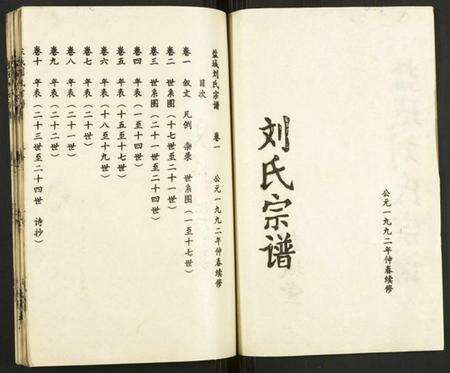 公元一九九二年仲春续修
刘氏宗谱
盐城刘氏宗谱 卷一 公元一九九二年仲春续修
目次
卷一 叙文 凡例 杂录 世系图（一至十七世）
卷二 世系图（十七世至二十一世）
卷三 世系图（二十一世至二十四世）
卷四 年表（一至十四世）
卷五 年表（十五至十七世）
卷六 年表（十八至十九世）
卷七 年表（二十世）
卷八 年表（二十一世）
卷九 年表（二十二世）
卷十 年表（二十三世至二十四世 诗抄）